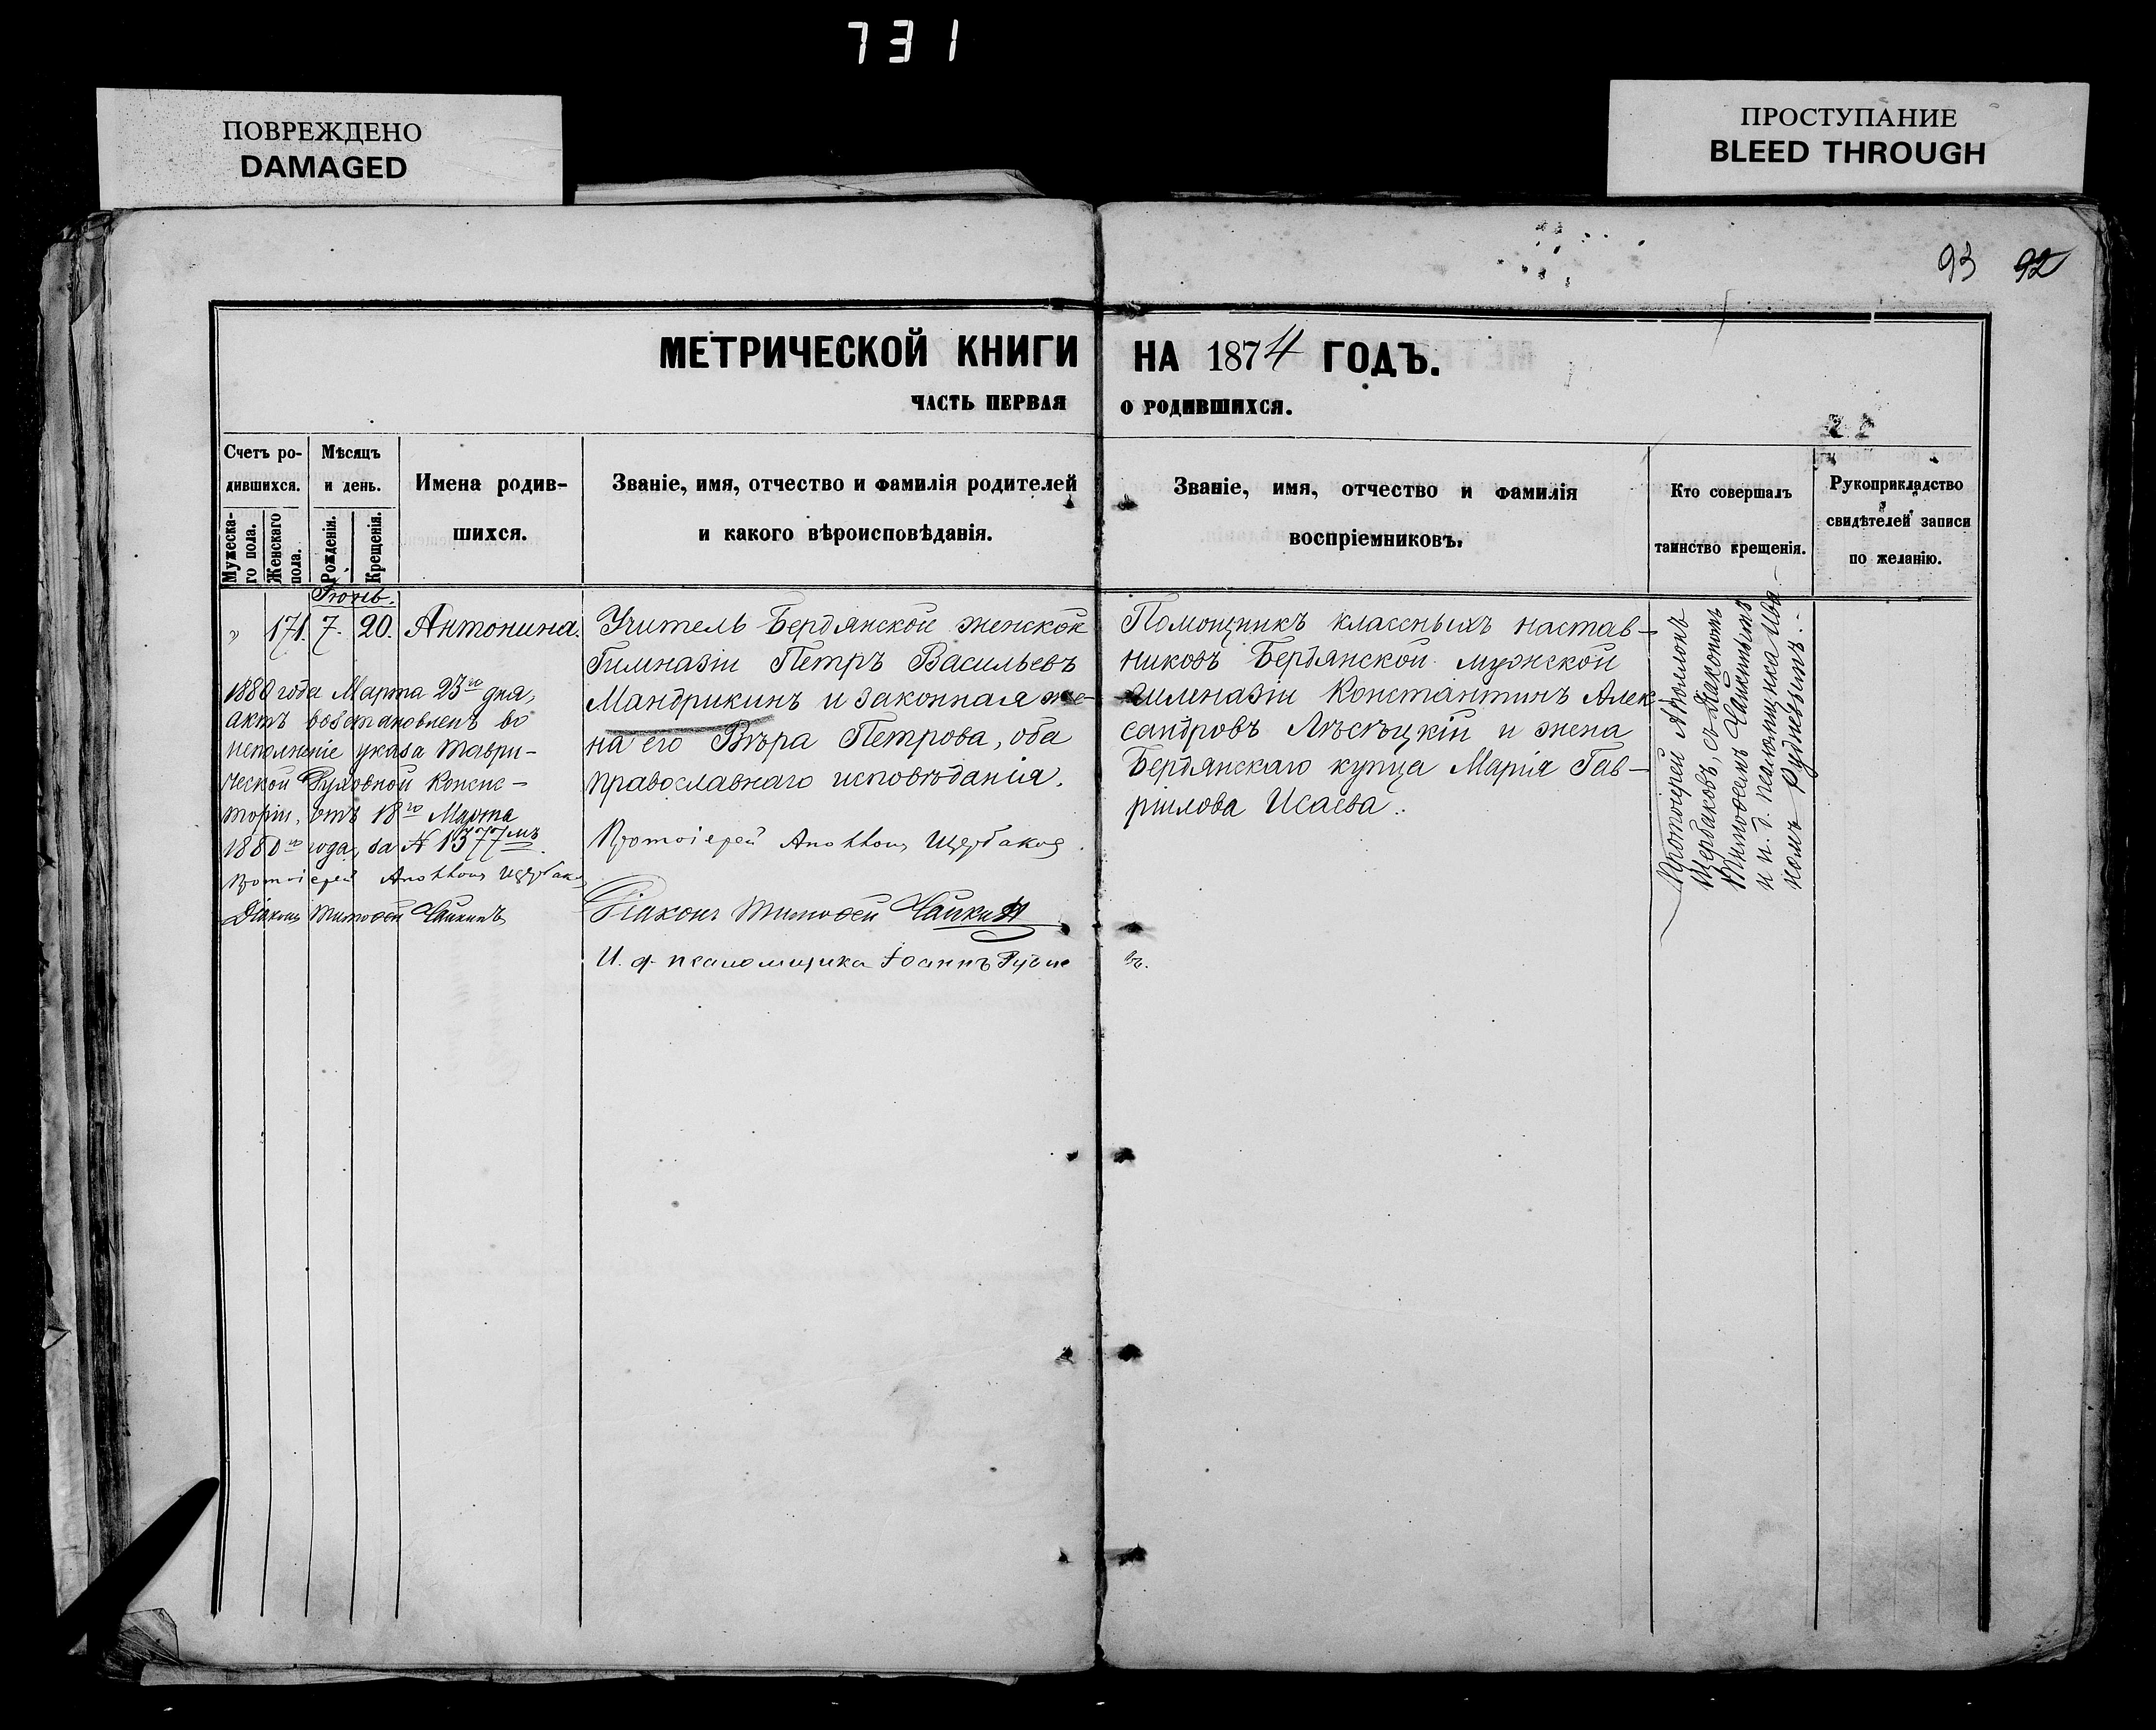 731
ПОВРЕЖДЕНО
DAMAGED
ПРОСТУПАНИЕ
BLEED THROUGH
93 92
МЕТРИЧЕСКОЙ КНИГИ НА 1874 ГОДЪ.
ЧАСТЬ ПЕРВАЯ О РОДИВШИХСЯ.
Счетъ ро-
дившихся.
Мужеска-
го пола.
Женскаго
пола.
Мѣсяцъ
и день.
Рожденія.
Крещенія.
Имена родив-
шихся.
Званіе, имя, отчество и фамилія родителей
и какого вѣроисповѣданія.
Званіе, имя, отчество и фамилія
воспріемниковъ.
Кто совершалъ
таинство крещенія.
Рукоприкладство
свидѣтелей записи
по желанію.
Іюнь.
" 171. 7. 20. Антонина.
1880 года Марта 23го дня,
актъ возстановленъ во
исполненіе указа Таври-
ческой Духовной Консис-
торіи, отъ 18го Марта
1880го года, за № 1377мъ.
Протоіерей Аполлонъ Щербаков
Діаконъ Тимофей Чайкинъ
Учитель Бердянской женской
Гимназіи Петръ Васильевъ
Мандрикинъ и законная же-
на его Вѣра Петрова, оба
православнаго исповѣданія.
Протоіерей Аполлонъ Щербаковъ
Діаконъ Тимофей Чайкинъ
И. д. псаломщика Іоаннъ Рудневъ.
Помощникъ классныхъ настав-
никовъ Бердянской мужской
гимназіи Константинъ Алек-
сандровъ Лѣсѣцкій и жена
Бердянскаго купца Марія Гав-
ріилова Исаева.
Протоіерей Аполлонъ
Щербаковъ, съ Діакономъ
Тимофеемъ Чайкинымъ
и и. д. псаломщика Ива-
номъ Рудневымъ.